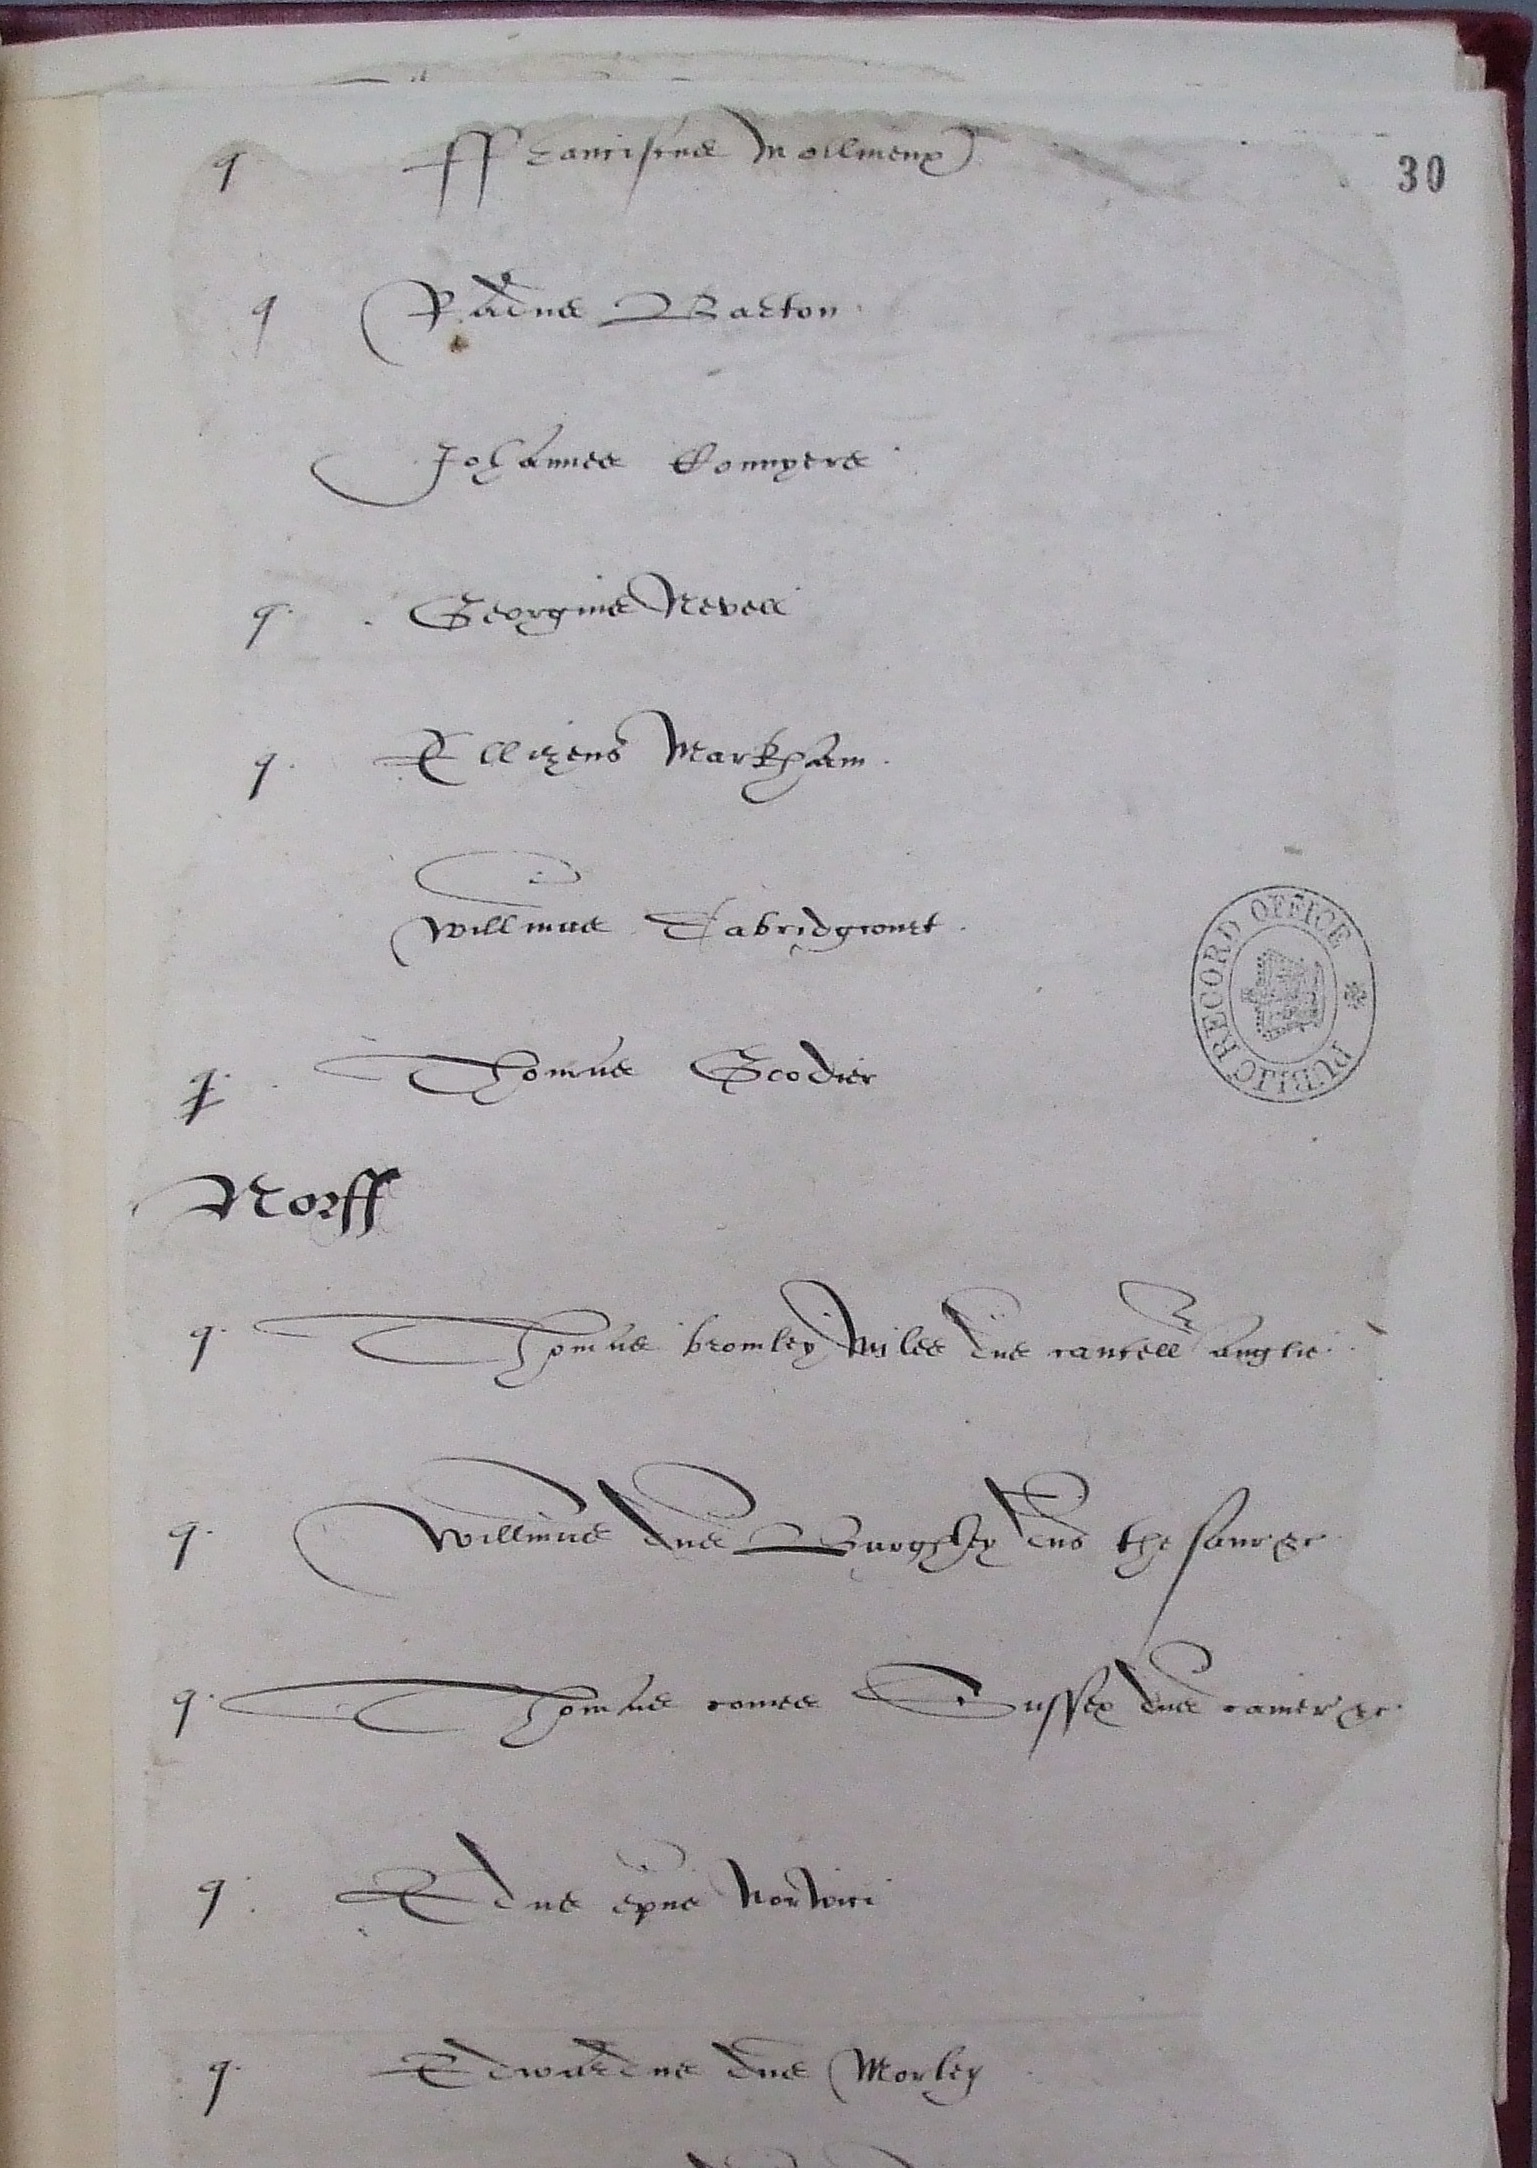 30
q ffranciscus Mollineux
q Radus Barton
Johannes Connyers
q Georgius Nevell
q Ellizeus Markham
Willmus Dabridgcourt
q Thomas Goodier
Norff
q Thomas bromley Miles dns cancell anglie
q Willmus dns Burghley dns thesaur &c
q Thomas comes Sussex dns camer &c
q Edus epus Norwici
q Edwardus dns Morley
PUBLIC RECORD OFFICE